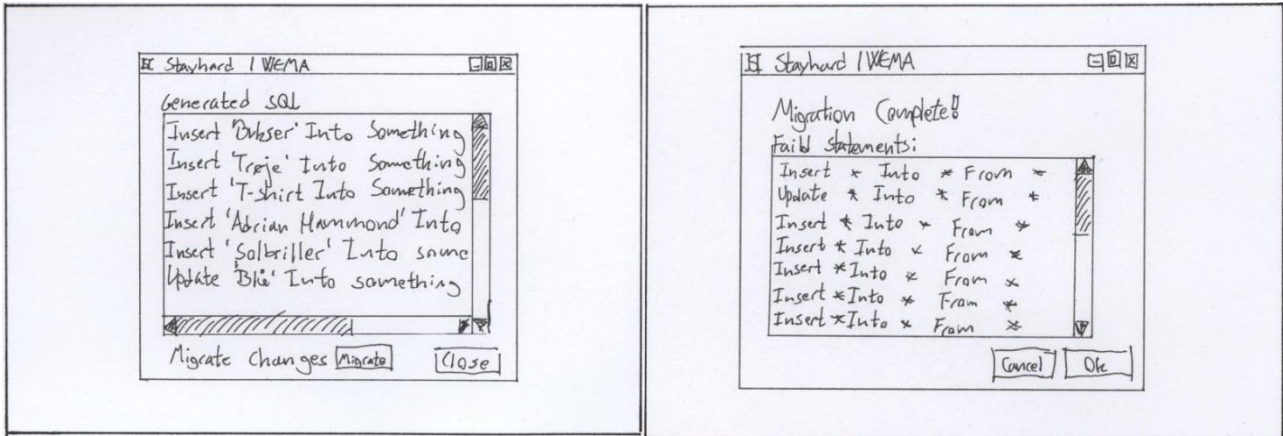 Stayhard | WEMA
Generated SQL
Insert 'Bukser' Into Something
Insert 'Trøje' Into Something
Insert 'T-shirt Into Something
Insert 'Adrian Hammond' Into
Insert 'Solbriller' Into some
Update 'Blå' Into something
Migrate Changes Migrate Close
Stayhard | WEMA
Migration Complete!
Faild statements:
Insert * Into * From *
Update * Into * From *
Insert * Into * From *
Insert * Into * From *
Insert * Into * From *
Insert * Into * From *
Insert * Into * From *
Cancel Ok